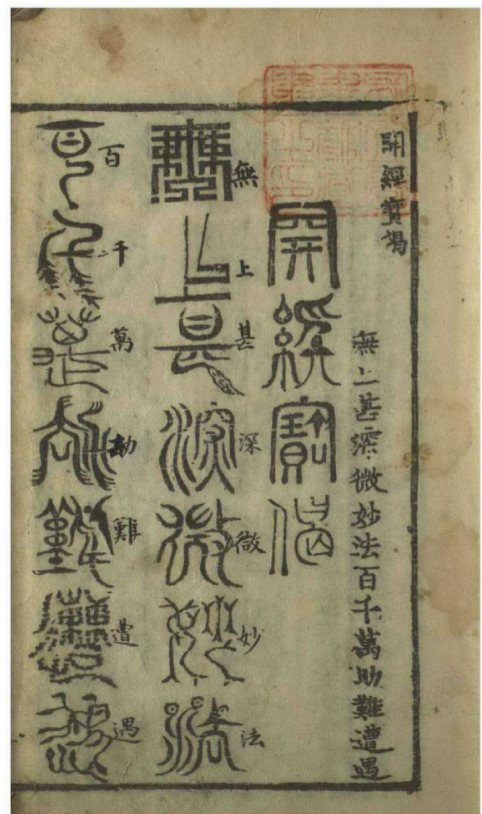 開經寶偈
無上甚深微妙法百千萬劫難遭遇
開經寶偈
無上甚深微妙法
無上甚深微妙法
百千萬劫難遭遇
百千萬劫難遭遇